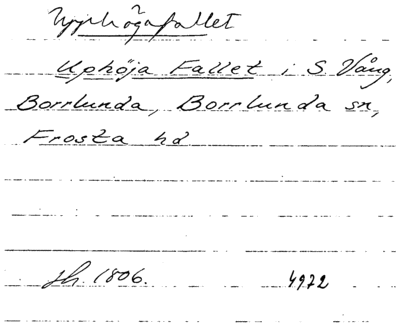 Upphögafallet
Uphöja Fallet i S. Vång,
Borrlunda, Borrlunda sn,
Frosta hd
sh. 1806. 4972